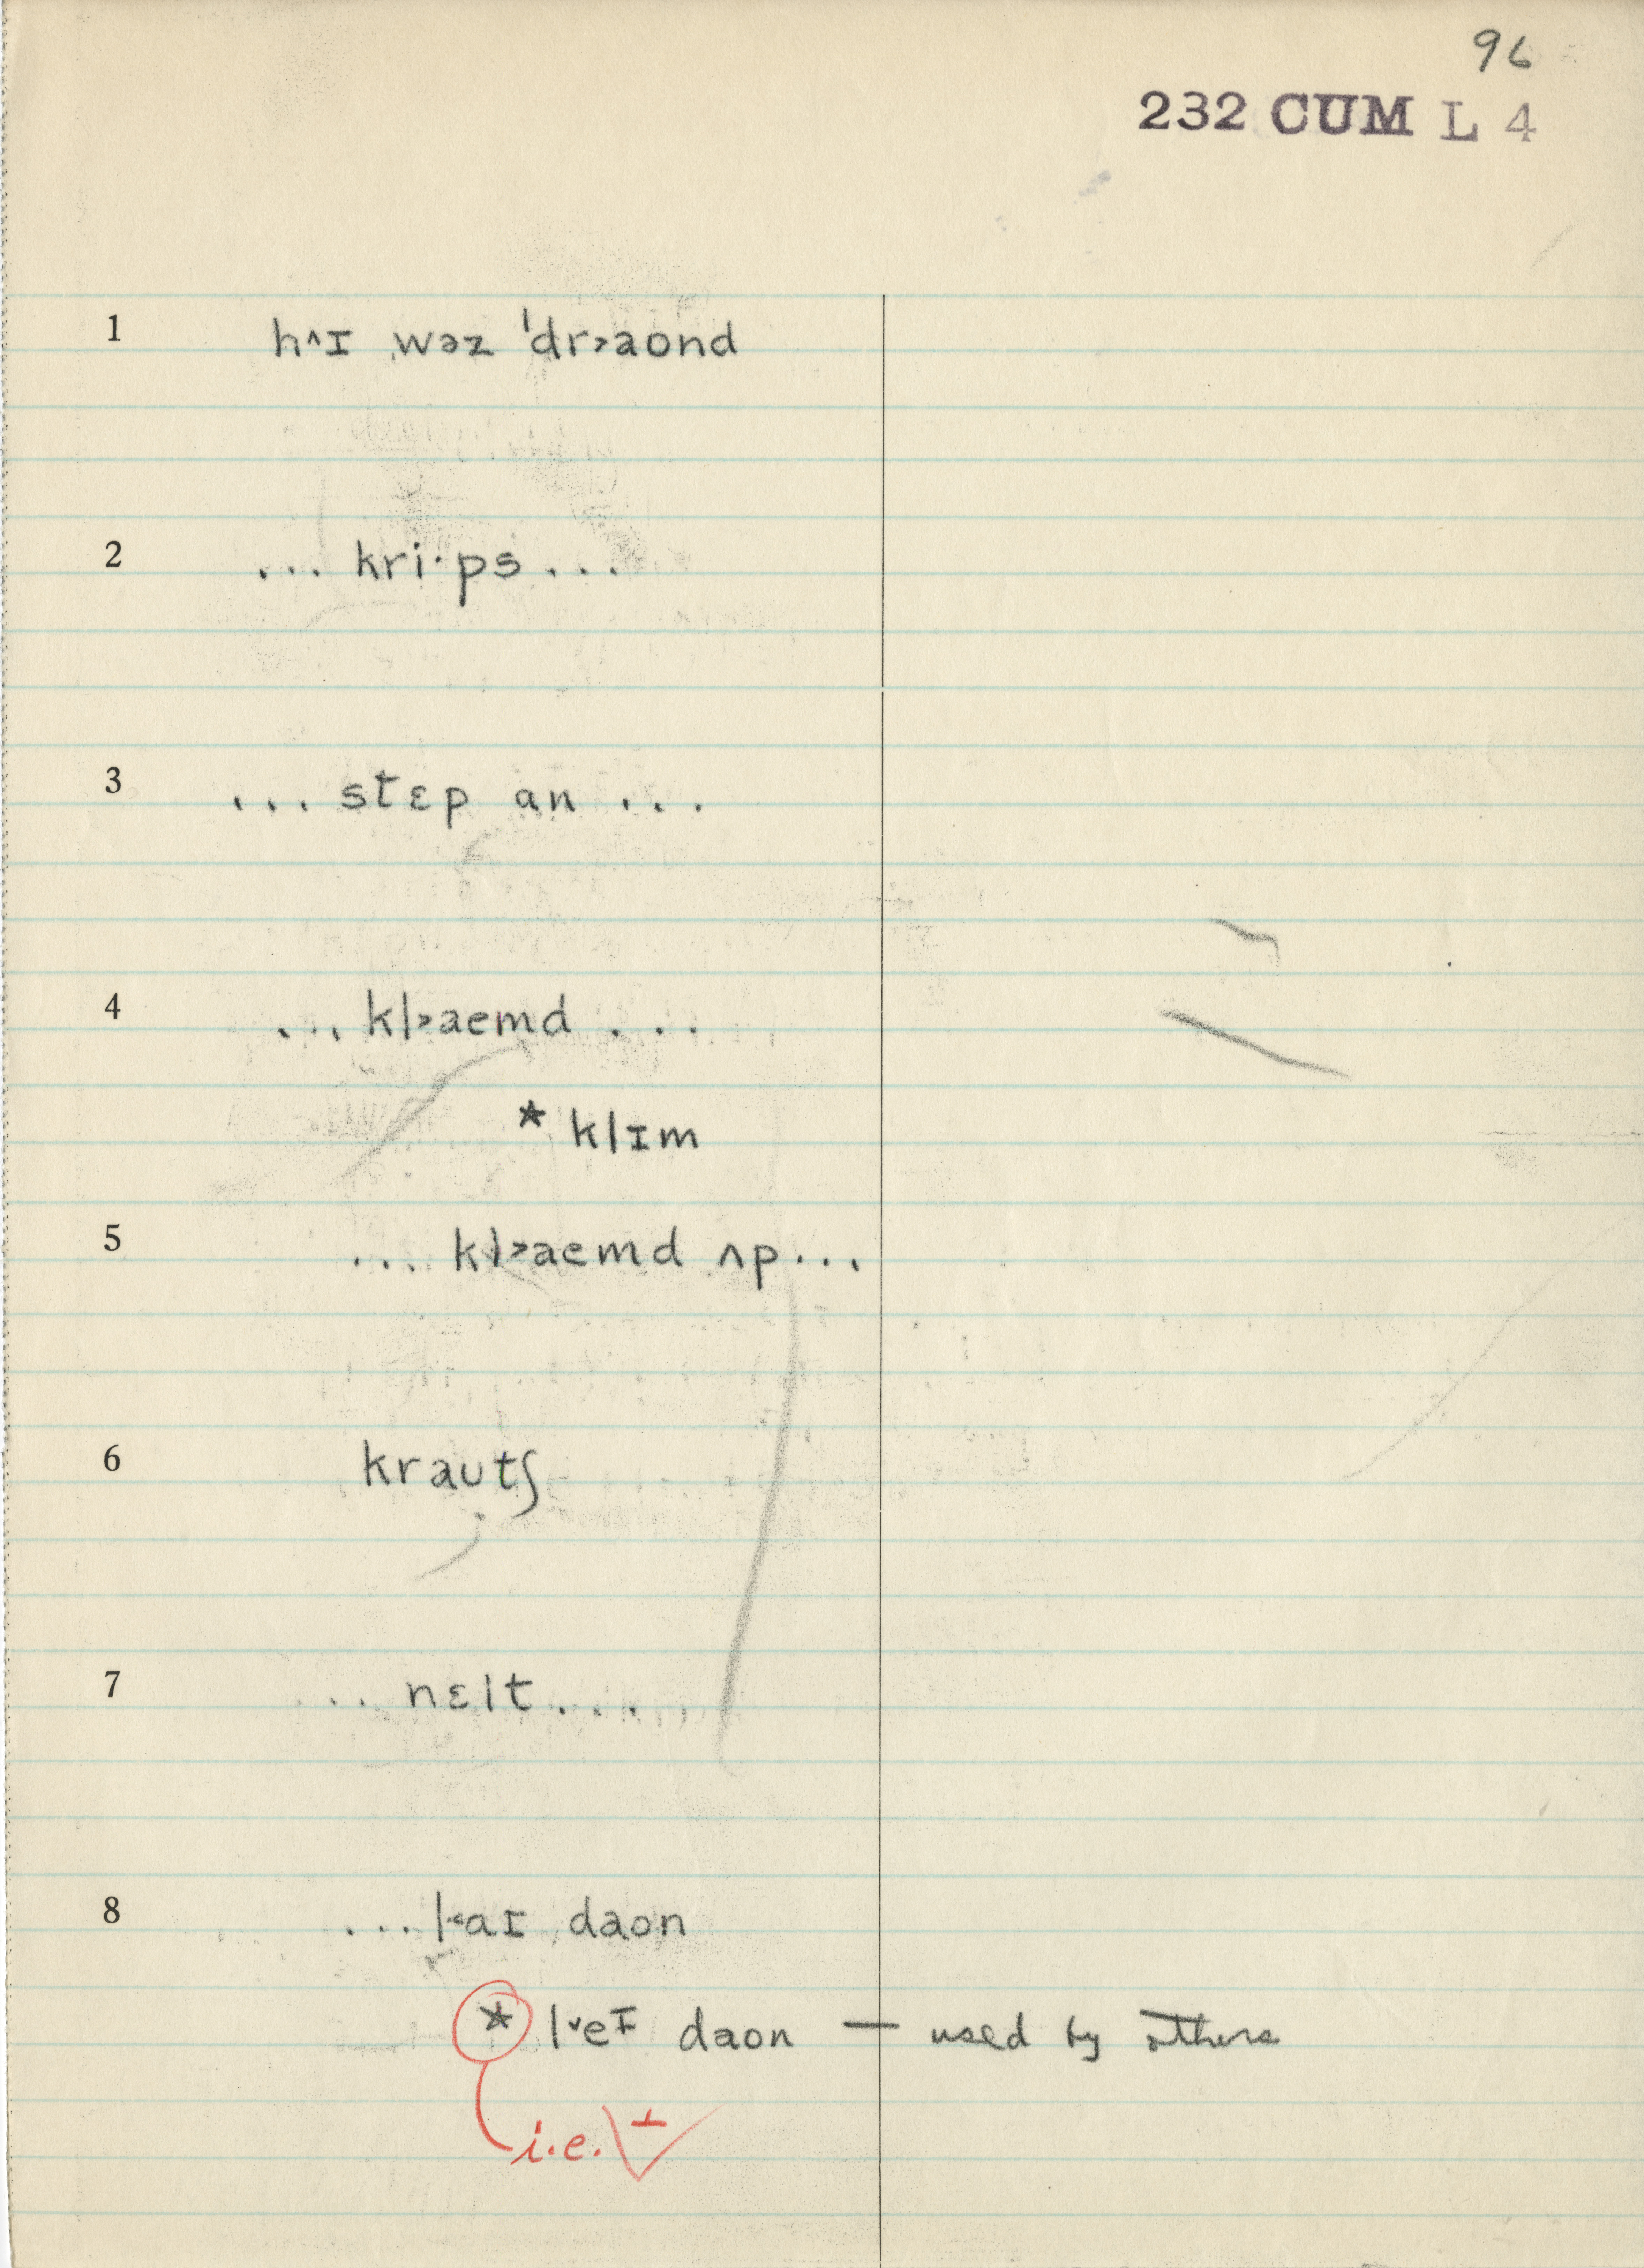 96
232 CUM L 4
1 h^ɪ wəz ˈdr>aond
2 ... kri·ps ...
3 ... stɛp an ...
4 ... kl>aemd ...
* klɪm
5 ... kl>aemd ʌp ...
6 krautʃ
7 ... nɛlt ...
8 ... l<aɪ daon
* lˇeɪ daon — used by others
i.e. ⊥